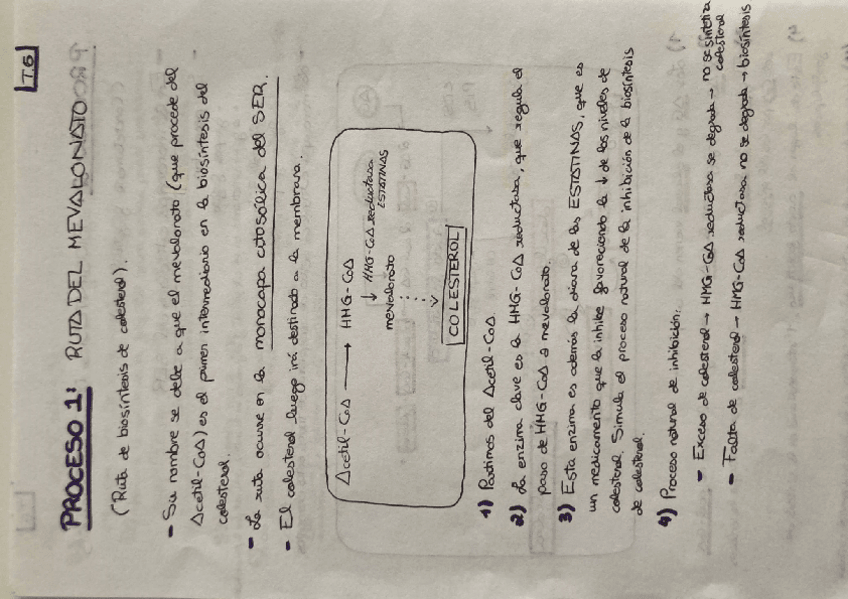 T.6
PROCESO 1: RUTA DEL MEVALONATO
(Ruta de biosíntesis de colesterol).
- Su nombre se debe a que el mevalonato (que procede del
Acetil-CoA) es el primer intermediario en la biosíntesis del
colesterol.
- La ruta ocurre en la monocapa citosólica del SER.
- El colesterol luego irá destinado a la membrana.
Acetil-CoA → HMG-CoA
↓ HMG-CoA reductasa
ESTATINAS
mevalonato
COLESTEROL
1) Partimos del Acetil-CoA.
2) La enzima clave es la HMG-CoA reductasa, que regula el
paso de HMG-CoA a mevalonato.
3) Esta enzima es además la diana de las ESTATINAS, que es
un medicamento que la inhibe favoreciendo la ↓ de los niveles de
colesterol. Simula el proceso natural de la inhibición de la biosíntesis
de colesterol.
4) Proceso natural de inhibición:
- Exceso de colesterol → HMG-CoA reductasa se degrada → no se sintetiza
colesterol
- Falta de colesterol → HMG-CoA reductasa no se degrada → biosíntesis